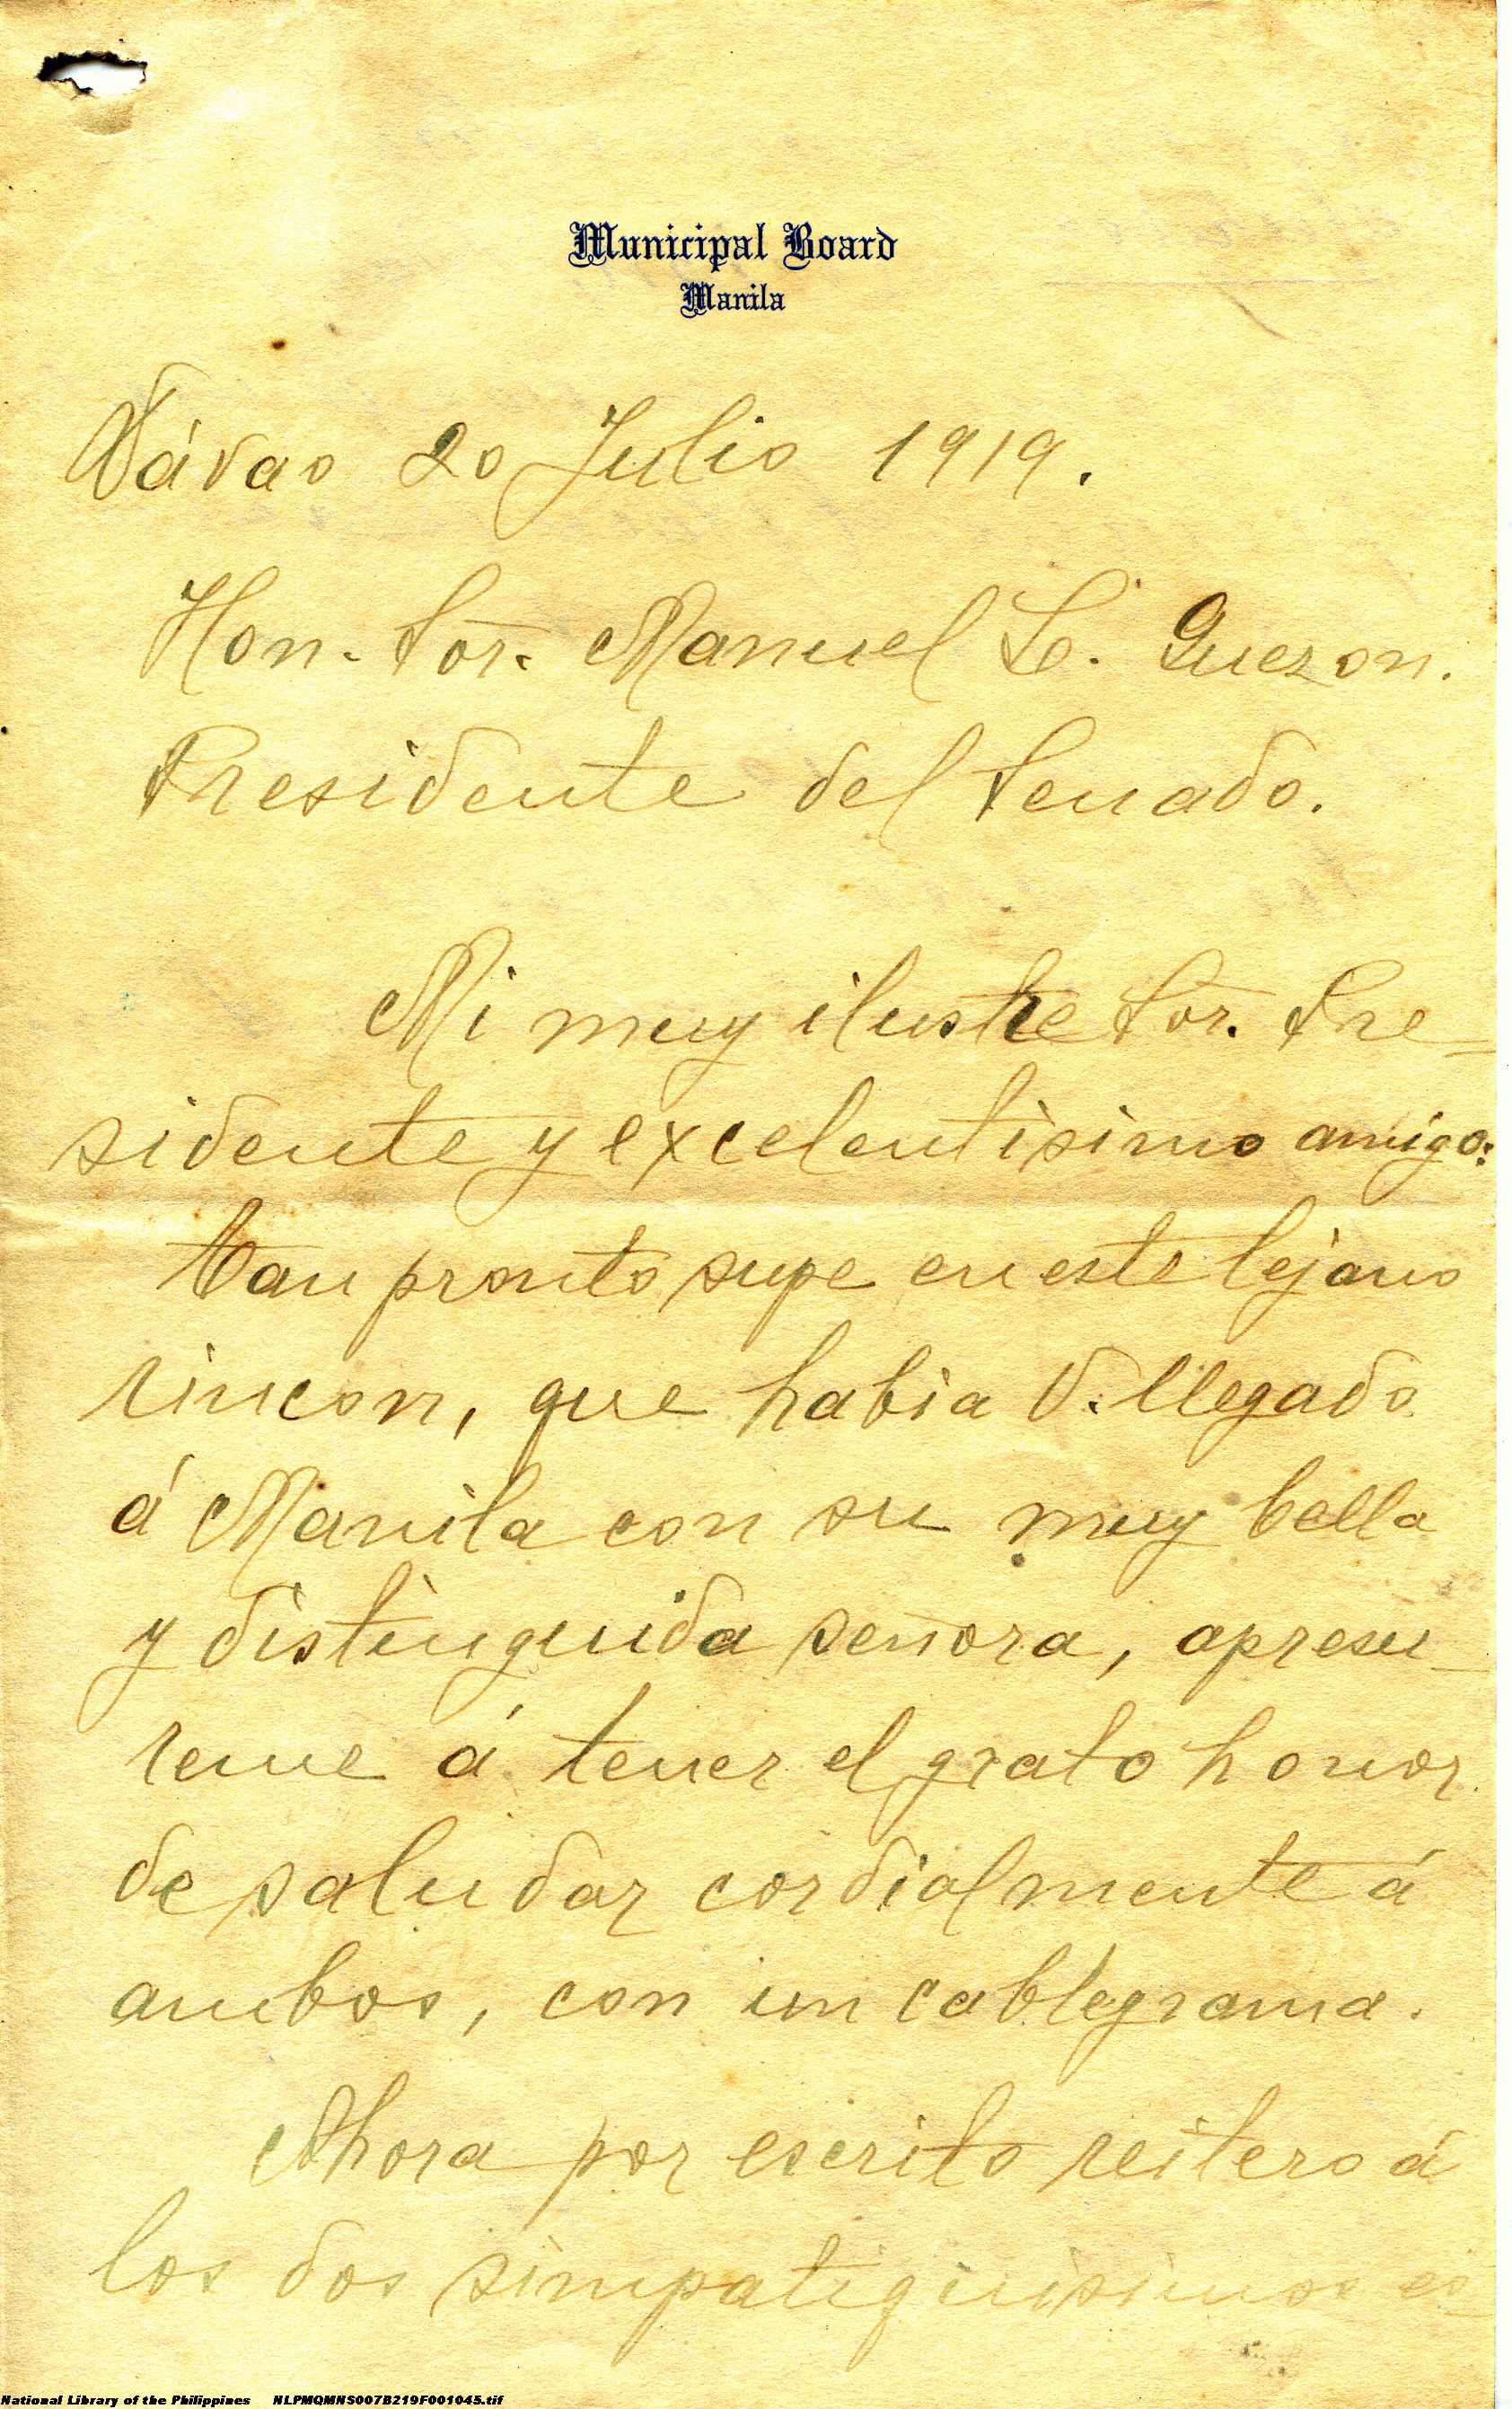 Municipal Board
Manila
Dávao 20 Julio 1919.
Hon. Sor. Manuel L. Quezon.
Presidente del Senado.
Mi muy ilustre Sor. Pre-
sidente y excelentisimo amigo:
Tan pronto supe en este lejano
rincon, que habia V. llegado
á Manila con su muy bella
y distinguida señora, apresu-
reme á tener el grato honor
de saludar cordialmente á
ambos, con un cablegrama.
Ahora por escrito reitero á
los dos simpatiquisimos es-
National Library of the Philippines NLPMQMNS007B219F001045.tif